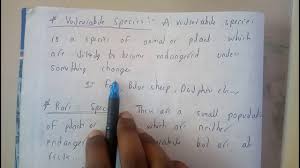 * Vulnerable Species :- A vulnerable species
is a species of animal or plant which
are likely to become endangered under
something changes
Blue sheep,
* Rare Species There are a small population
of plant or which are neither
endangered vulnerable but are at
risk